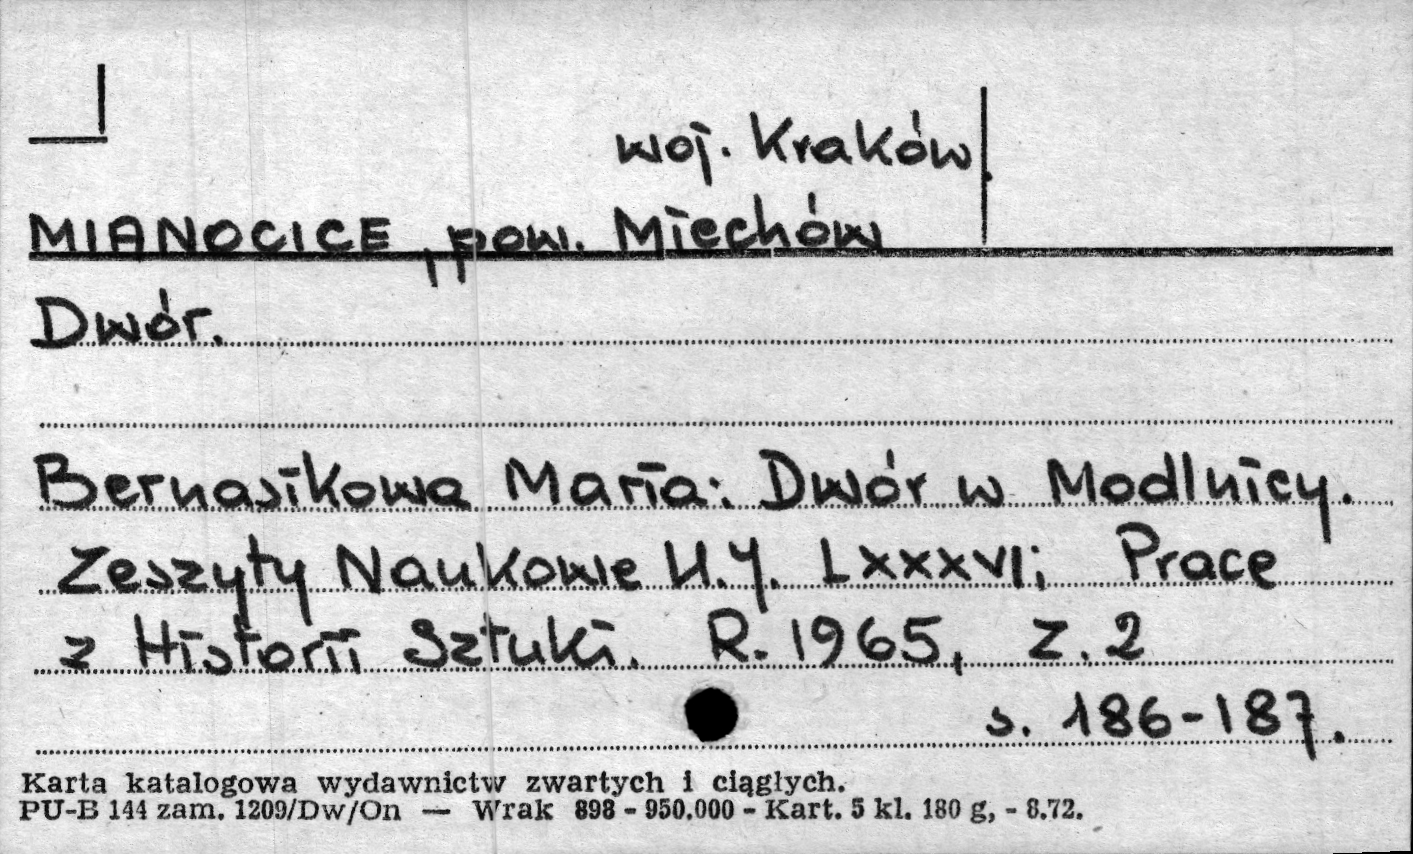 woj. Kraków.
MIANOCICE, pow. Miechów
Dwór.
Bernasikowa Maria: Dwór w Modlnicy.
Zeszyty Naukowe U.J. LXXXVI; Prace
z Historii Sztuki. R. 1965, Z. 2
s. 186-187.
Karta katalogowa wydawnictw zwartych i ciągłych.
PU-B 144 zam. 1209/Dw/On — Wrak 898 - 950.000 - Kart. 5 kl. 180 g, - 8.72.